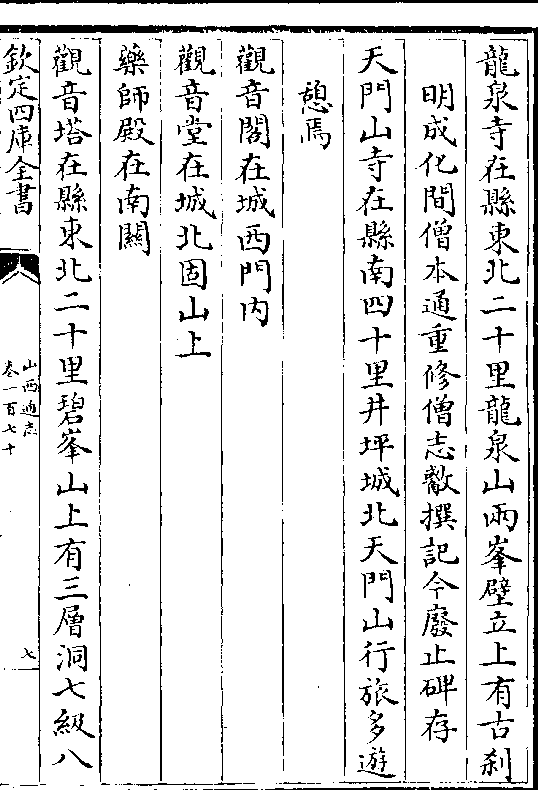 龍泉寺在縣東北二十里龍泉山兩峯壁立上有古刹
明成化間僧本通重修僧志敾撰記今廢止碑存
天門山寺在縣南四十里井坪城北天門山行旅多遊
憩焉
觀音閣在城西門内
觀音堂在城北固山上
藥師殿在南關
觀音塔在縣東北二十里碧峯山上有三層洞七級八
欽定四庫全書
山西通志
卷一百七十
七